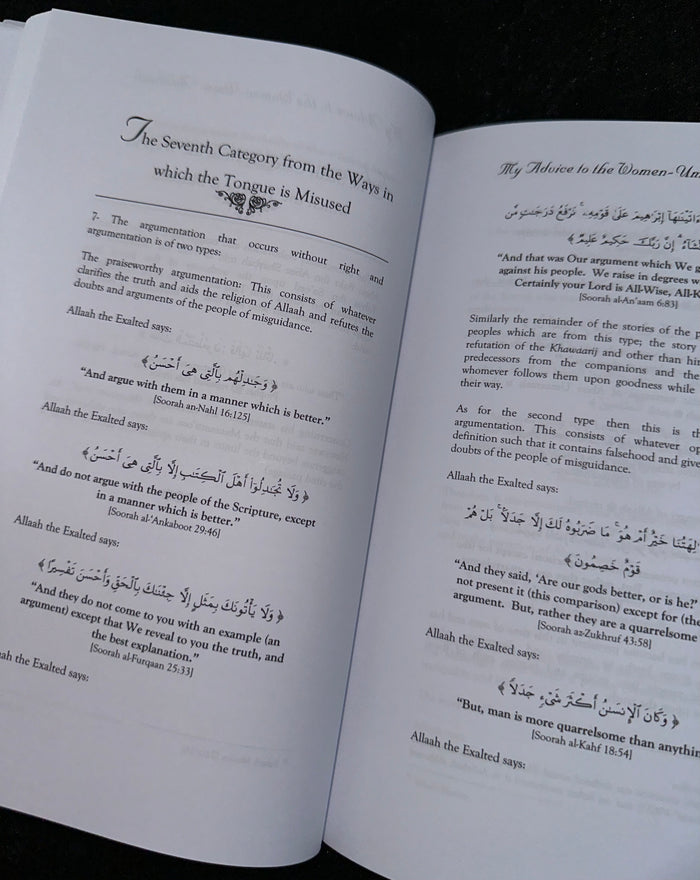 The Seventh Category from the Ways in
which the Tongue is Misused
7- The argumentation that occurs without right and
argumentation is of two types:
The praiseworthy argumentation: This consists of whatever
clarifies the truth and aids the religion of Allaah and refutes the
doubts and arguments of the people of misguidance.
Allaah the Exalted says:
﴿ وَجَـٰدِلْهُم بِٱلَّتِى هِىَ أَحْسَنُ ﴾
“And argue with them in a manner which is better.”
[Soorah an-Nahl 16:125]
Allaah the Exalted says:
﴿ وَلَا تُجَـٰدِلُوٓا۟ أَهْلَ ٱلْكِتَـٰبِ إِلَّا بِٱلَّتِى هِىَ أَحْسَنُ ﴾
“And do not argue with the people of the Scripture, except
in a manner which is better.”
[Soorah al-‘Ankaboot 29:46]
Allaah the Exalted says:
﴿ وَلَا يَأْتُونَكَ بِمَثَلٍ إِلَّا جِئْنَـٰكَ بِٱلْحَقِّ وَأَحْسَنَ تَفْسِيرًا ﴾
“And they do not come to you with an example (an
argument) except that We reveal to you the truth, and
the best explanation.”
[Soorah al-Furqaan 25:33]
the Exalted says:
My Advice to the Women-
ءَاتَيْنَـٰهَآ إِبْرَٰهِيمَ عَلَىٰ قَوْمِهِۦ ۚ نَرْفَعُ دَرَجَـٰتٍ مَّن
إِنَّ رَبَّكَ حَكِيمٌ عَلِيمٌ ﴾
“And that was Our argument which We
against his people. We raise in degrees
Certainly your Lord is All-Wise,
[Soorah al-An’aam 6:83]
Similarly the remainder of the stories of the
peoples which are from this type; the story
refutation of the Khawaarij and other than
predecessors from the companions and the
whomever follows them upon goodness while
their way.
As for the second type then this is
argumentation. This consists of whatever
definition such that it contains falsehood and
doubts of the people of misguidance.
Allaah the Exalted says:
خَيْرٌ أَمْ هُوَ ۚ مَا ضَرَبُوهُ لَكَ إِلَّا جَدَلًۢا ۚ بَلْ هُمْ
قَوْمٌ خَصِمُونَ ﴾
“And they said, ‘Are our gods better, or is he?”
not present it (this comparison) except for
argument. But, rather they are a quarrelsome
[Soorah az-Zukhruf 43:58]
Allaah the Exalted says:
﴿ وَكَانَ ٱلْإِنسَـٰنُ أَكْثَرَ شَىْءٍ جَدَلًا ﴾
“But, man is more quarrelsome than
[Soorah al-Kahf 18:54]
Allaah the Exalted says: